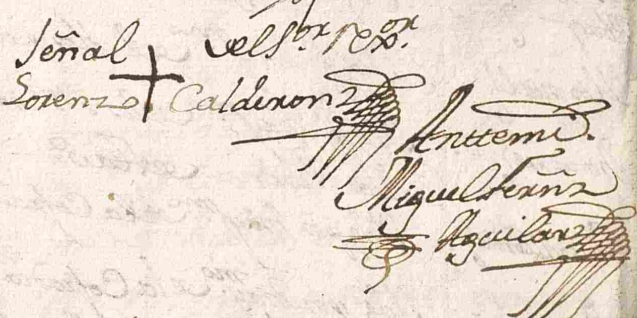 señal + del Sor. Rxor.
Lorenzo Calderon
Anttemi.
Miguel ferñz
Aguilar